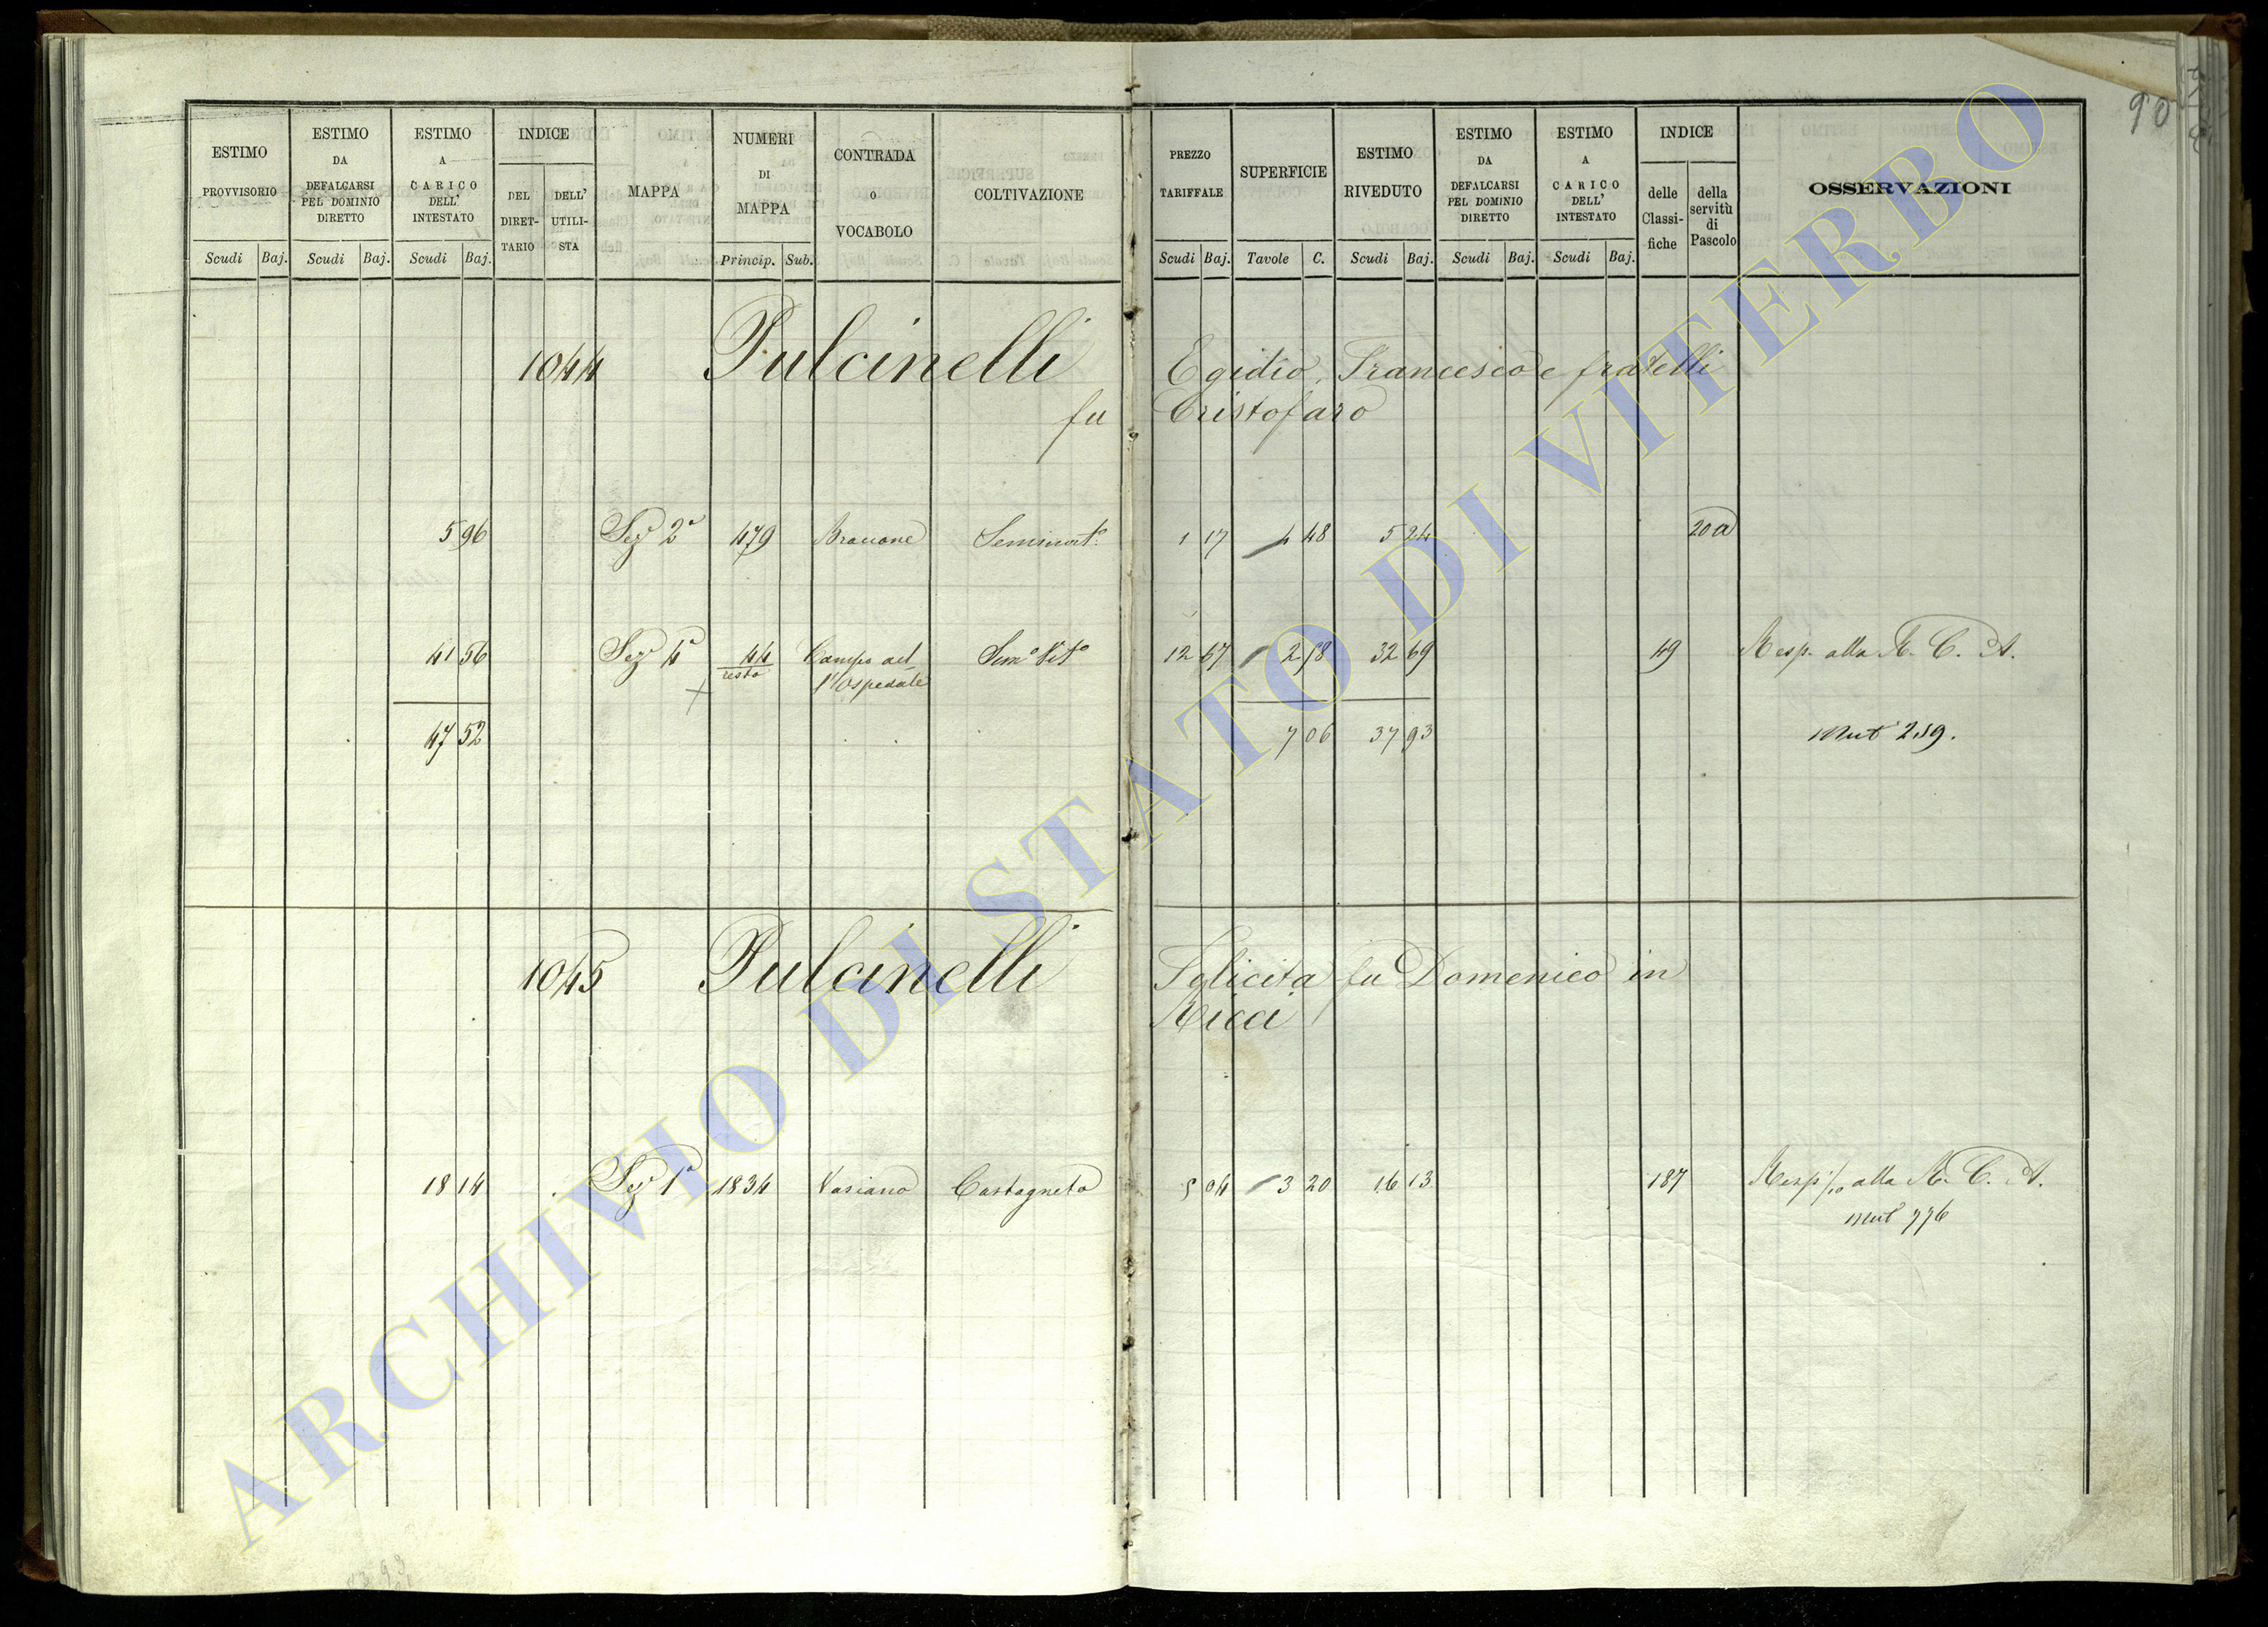 90
ESTIMO PROVVISORIO
ESTIMO DA DEFALCARSI PEL DOMINIO DIRETTO
ESTIMO A CARICO DELL' INTESTATO
INDICE
DEL DIRET-TARIO
DELL' UTILI-STA
MAPPA
NUMERI DI MAPPA
CONTRADA o VOCABOLO
COLTIVAZIONE
Scudi Baj. Scudi Baj. Scudi Baj. Princip. Sub.
PREZZO TARIFFALE
SUPERFICIE
ESTIMO RIVEDUTO
ESTIMO DA DEFALCARSI PEL DOMINIO DIRETTO
ESTIMO A CARICO DELL' INTESTATO
INDICE
delle Classi-fiche
della servitù di Pascolo
OSSERVAZIONI
Scudi Baj. Tavole C. Scudi Baj. Scudi Baj. Scudi Baj.
1044 Pulcinelli Egidio, Francesco e fratelli
fu Cristofaro
5 96 Sez 2a 479 Seminat.o 1 17 4 48 5 24 20a
41 56 Sez 4a 44 Campo del Sem.o Vit.o 12 67 2 58 32 69 49 Resp. alla R. C. A.
resto l'Ospedale
47 52 7 06 37 93 Mut 259.
1045 Pulcinelli Felicita fu Domenico in
Ricci
18 14 Sez 1a 1834 Vasiano Castagneto 5 04 3 20 16 13 187 Risp 1/10 alla R. C. A.
Mut 776
ARCHIVIO DI STATO DI VITERBO